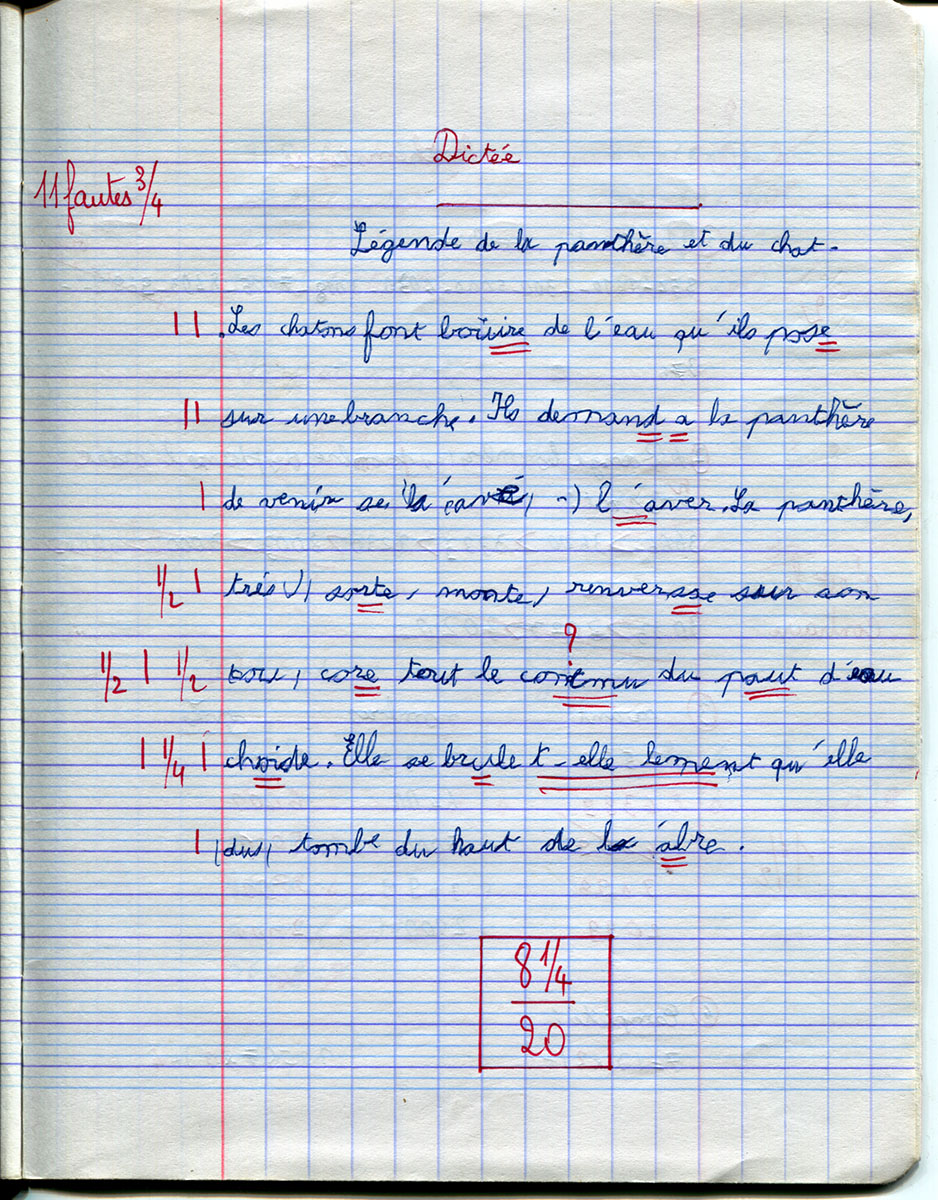 Dictée
11 fautes 3/4
Légende de la panthère et du chat.
11 . Les chatons font boiuire de l'eau qu'ils pose
11 sur une branche. Ils demand a la panthère
1 de venir se l'aver. La panthère,
1/2 1 trés sorte, monte, renversse sur son
1/2 1 1/2 core tout le du paut d'eau
1 1/4 1 choide. Elle se brule t-elle lement qu'elle
1 (dus) tombe du haut de la âbre.
8 1/4
20